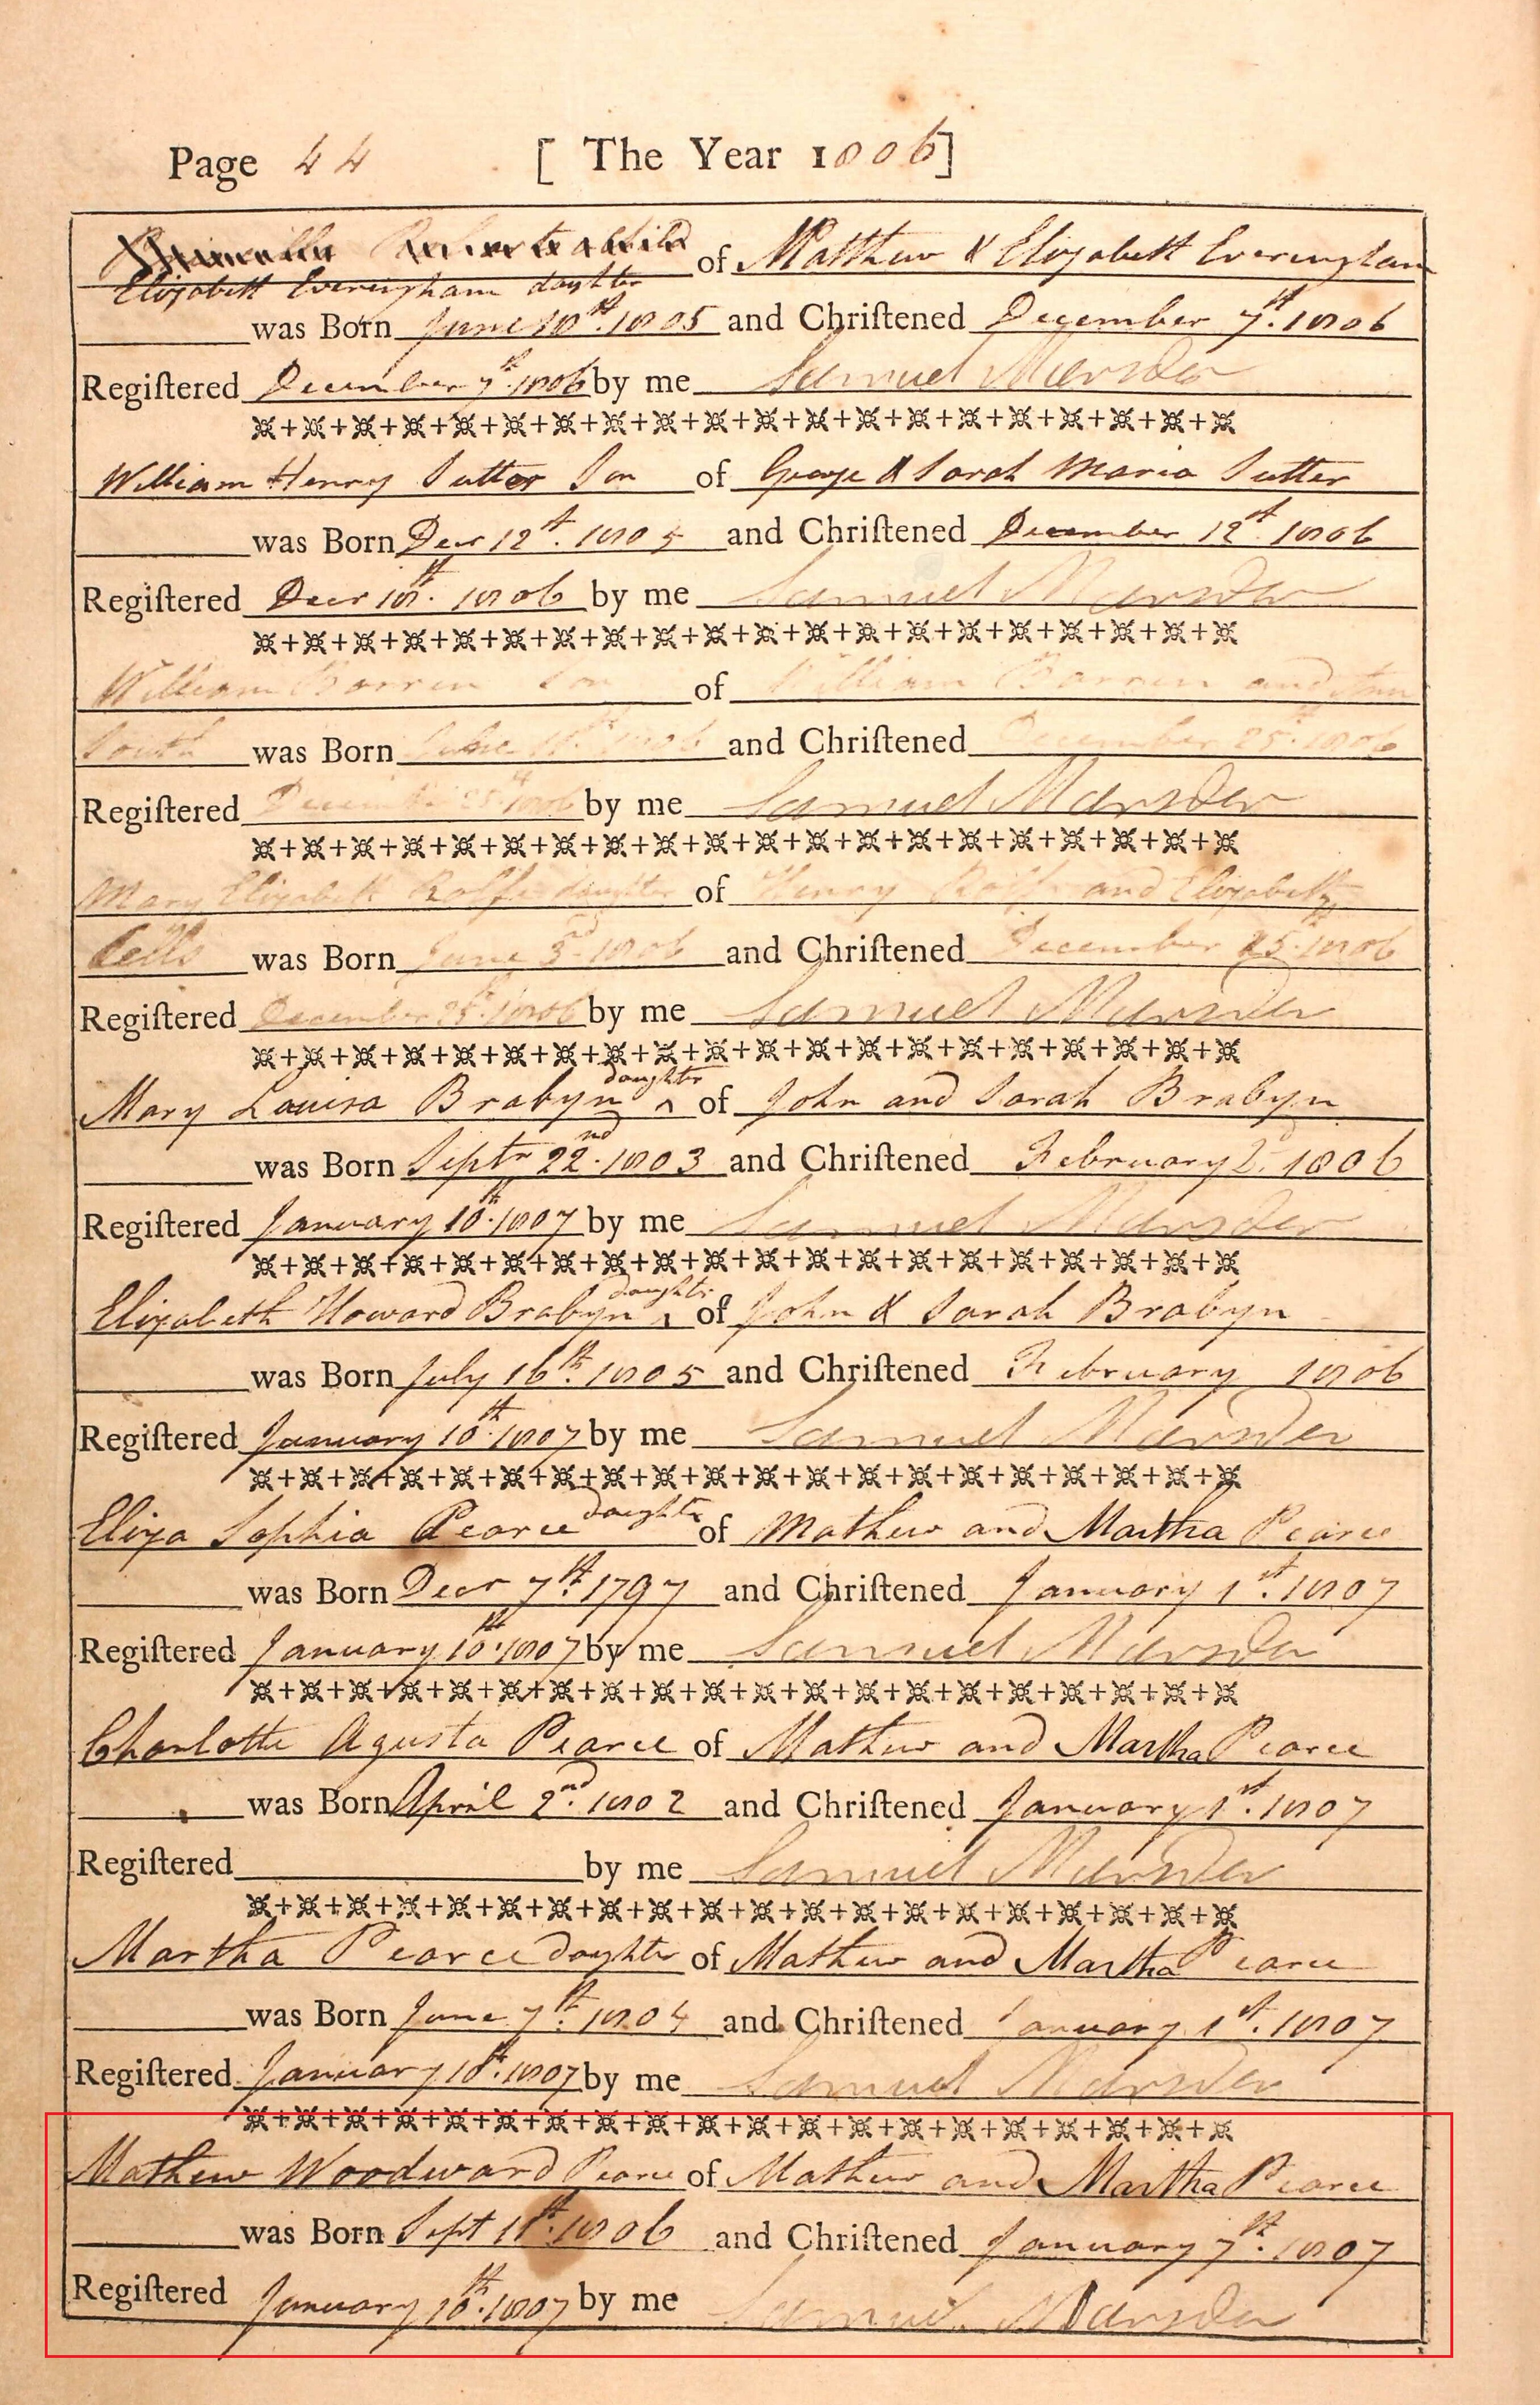 Page 44 [ The Year 1806]
of Matthew & Elizabeth Everingham
Elizabeth Everingham daughter
was Born June 10th. 1805 and Chriſtened December 7th. 1806
Regiſtered December 7th. 1806 by me Samuel Marsden
William Henry Sutter Son of George & Sarah Maria Sutter
was Born Decr 12th. 1805 and Chriſtened December 12th 1806
Regiſtered Decr 18th. 1806 by me Samuel Marsden
William Barren Son of William Barren and Ann
South was Born 1806 and Chriſtened December 25th. 1806
Regiſtered December 25th 1806 by me Samuel Marsden
Mary Elizabeth Rolfe daughter of Henry Rolfe and Elizabeth
Cells was Born June 3rd 1806 and Chriſtened December 25th. 1806
Regiſtered December 25th. 1806 by me Samuel Marsden
Mary Louisa Brabyn daughter of John and Sarah Brabyn
was Born Septr 22nd. 1803 and Chriſtened February 2d. 1806
Regiſtered January 10th. 1807 by me Samuel Marsden
Elizabeth Howard Brabyn daughter of John & Sarah Brabyn
was Born July 16th. 1805 and Chriſtened February 1806
Regiſtered January 10th. 1807 by me Samuel Marsden
Eliza Sophia Pearce daughter of Mathew and Martha Pearce
was Born Decr 7th. 1797 and Chriſtened January 1st. 1807
Regiſtered January 10th. 1807 by me Samuel Marsden
Charlotte Agusta Pearce of Mathew and Martha Pearce
was Born April 2nd. 1802 and Chriſtened January 1st. 1807
Regiſtered by me Samuel Marsden
Martha Pearce daughter of Mathew and Martha Pearce
was Born June 7th. 1804 and Chriſtened January 1st. 1807
Regiſtered January 10th. 1807 by me Samuel Marsden
Mathew Woodward Pearce of Mathew and Martha Pearce
was Born Sept 11th. 1806 and Chriſtened January 7th. 1807
Regiſtered January 10th. 1807 by me Samuel Marsden